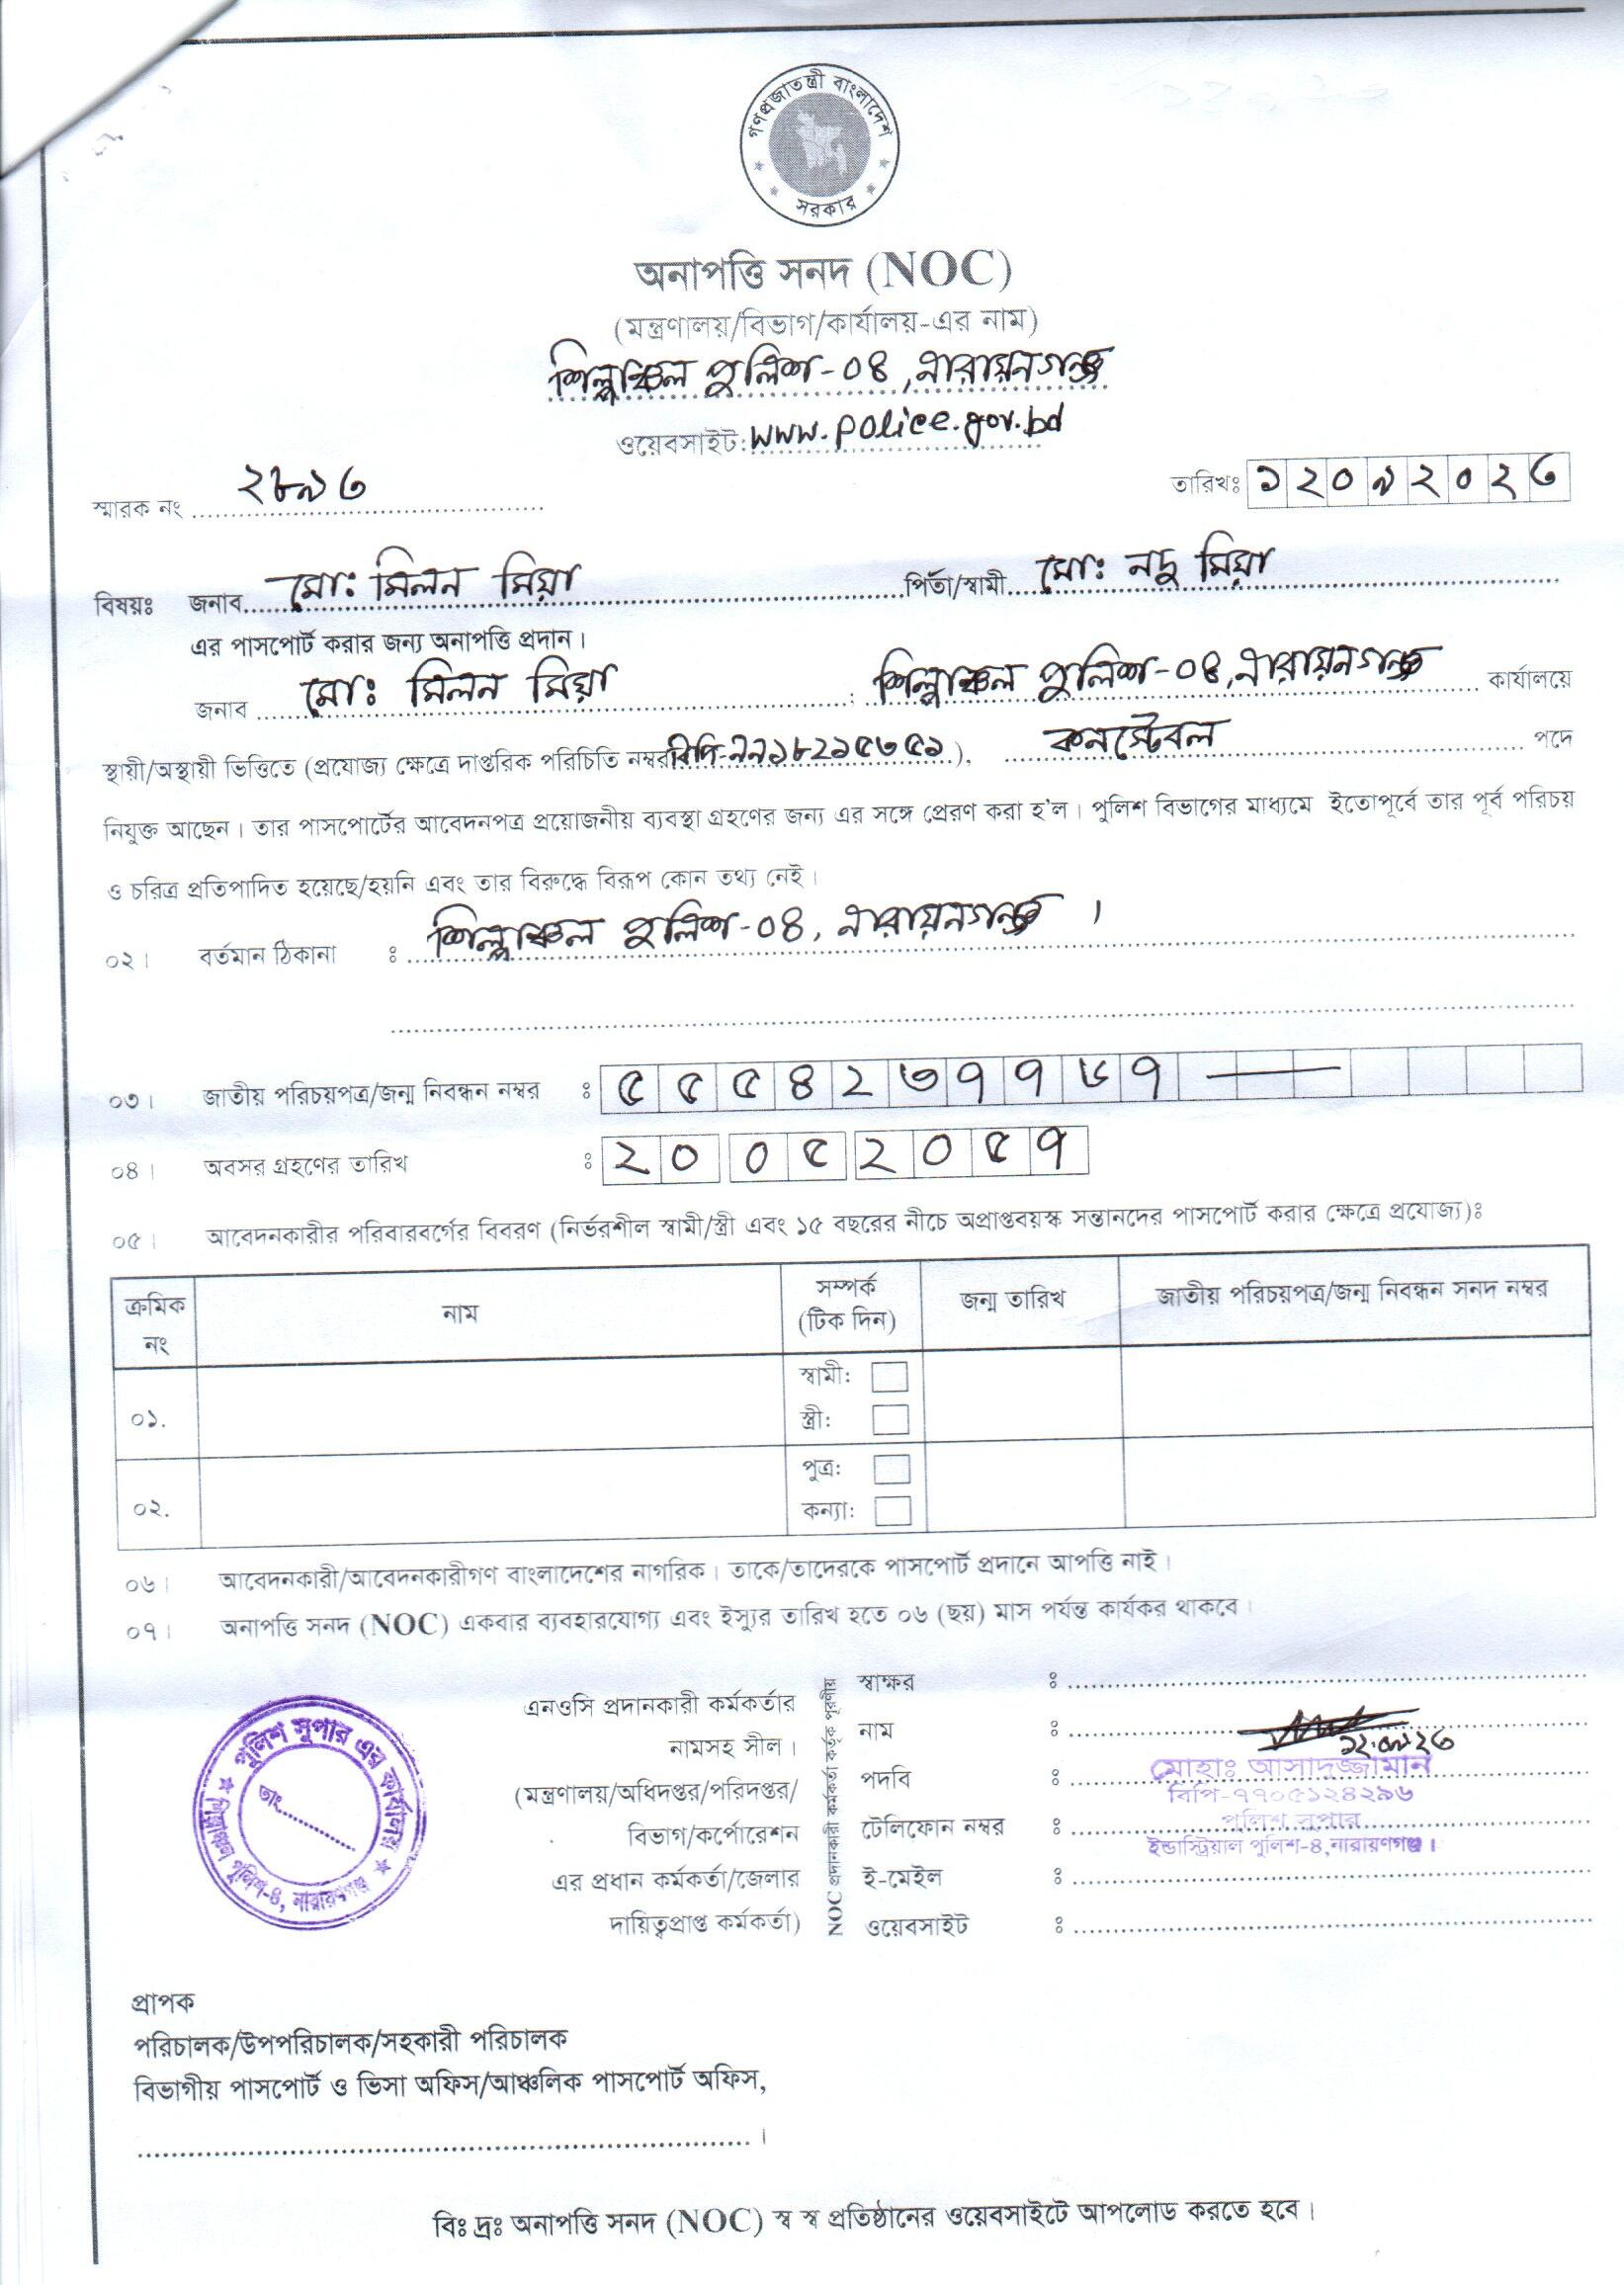 গণপ্রজাতন্ত্রী বাংলাদেশ
সরকার
অনাপত্তি সনদ (NOC)
(মন্ত্রণালয়/বিভাগ/কার্যালয়-এর নাম)
শিল্পাঞ্চল পুলিশ-০৪, নারায়নগঞ্জ
ওয়েবসাইট: www.police.gov.bd
স্মারক নং ২৮৯৩
তারিখঃ ১২০৯২০২৩
বিষয়ঃ জনাব মোঃ মিলন মিয়া পিতা/স্বামী মোঃ নদু মিয়া
এর পাসপোর্ট করার জন্য অনাপত্তি প্রদান।
জনাব মোঃ মিলন মিয়া শিল্পাঞ্চল পুলিশ-০৪, নারায়নগঞ্জ কার্যালয়ে
স্থায়ী/অস্থায়ী ভিত্তিতে (প্রযোজ্য ক্ষেত্রে দাপ্তরিক পরিচিতি নম্বর বিপি-৯৯১৮২১৫৩৫১), কনস্টেবল পদে
নিযুক্ত আছেন। তার পাসপোর্টের আবেদনপত্র প্রয়োজনীয় ব্যবস্থা গ্রহণের জন্য এর সঙ্গে প্রেরণ করা হ'ল। পুলিশ বিভাগের মাধ্যমে ইতোপূর্বে তার পূর্ব পরিচয়
ও চরিত্র প্রতিপাদিত হয়েছে/হয়নি এবং তার বিরুদ্ধে বিরূপ কোন তথ্য নেই।
০২। বর্তমান ঠিকানা ঃ শিল্পাঞ্চল পুলিশ-০৪, নারায়নগঞ্জ।
০৩। জাতীয় পরিচয়পত্র/জন্ম নিবন্ধন নম্বর ঃ ৫৫৫৪২৩৭৭৬৭
০৪। অবসর গ্রহণের তারিখ ঃ ২০০৫২০৫৭
০৫। আবেদনকারীর পরিবারবর্গের বিবরণ (নির্ভরশীল স্বামী/স্ত্রী এবং ১৫ বছরের নীচে অপ্রাপ্তবয়স্ক সন্তানদের পাসপোর্ট করার ক্ষেত্রে প্রযোজ্য)ঃ
ক্রমিক নং নাম সম্পর্ক (টিক দিন) জন্ম তারিখ জাতীয় পরিচয়পত্র/জন্ম নিবন্ধন সনদ নম্বর
০১. স্বামী:
স্ত্রী:
০২. পুত্র:
কন্যা:
০৬। আবেদনকারী/আবেদনকারীগণ বাংলাদেশের নাগরিক। তাকে/তাদেরকে পাসপোর্ট প্রদানে আপত্তি নাই।
০৭। অনাপত্তি সনদ (NOC) একবার ব্যবহারযোগ্য এবং ইস্যুর তারিখ হতে ০৬ (ছয়) মাস পর্যন্ত কার্যকর থাকবে।
পুলিশ সুপার এর কার্যালয়
তাং
শিল্পাঞ্চল পুলিশ-৪, নারায়ণগঞ্জ
এনওসি প্রদানকারী কর্মকর্তার
নামসহ সীল।
(মন্ত্রণালয়/অধিদপ্তর/পরিদপ্তর/
বিভাগ/কর্পোরেশন
এর প্রধান কর্মকর্তা/জেলার
দায়িত্বপ্রাপ্ত কর্মকর্তা)
NOC প্রদানকারী কর্মকর্তা কর্তৃক পূরণীয়
স্বাক্ষর ঃ
নাম ঃ
পদবি ঃ
টেলিফোন নম্বর ঃ
ই-মেইল ঃ
ওয়েবসাইট ঃ
১২.০৯.২৩
মোহাঃ আসাদুজ্জামান
বিপি-৭৭০৫১২৪২৯৬
পুলিশ সুপার
ইন্ডাস্ট্রিয়াল পুলিশ-৪, নারায়ণগঞ্জ।
প্রাপক
পরিচালক/উপপরিচালক/সহকারী পরিচালক
বিভাগীয় পাসপোর্ট ও ভিসা অফিস/আঞ্চলিক পাসপোর্ট অফিস,
বিঃ দ্রঃ অনাপত্তি সনদ (NOC) স্ব স্ব প্রতিষ্ঠানের ওয়েবসাইটে আপলোড করতে হবে।